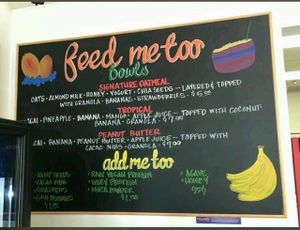 feed me too
bowls
SIGNATURE OATMEAL
OATS · ALMOND MILK · HONEY · YOGURT · CHIA SEEDS — LAYERED & TOPPED
WITH GRANOLA · BANANAS · STRAWBERRIES
TROPICAL
· PINEAPPLE · BANANA · MANGO · APPLE JUICE — TOPPED WITH COCONUT
BANANA · GRANOLA · $7.00
PEANUT BUTTER
· BANANA · PEANUT BUTTER · APPLE JUICE — TOPPED WITH
CACAO NIBS · GRANOLA · $7.00
add me too
HEMP SEEDS
CACAO NIBS
• RAW VEGAN PROTEIN
• WHEY PROTEIN
• MACA POWDER
$1.50
• AGAVE
• HONEY